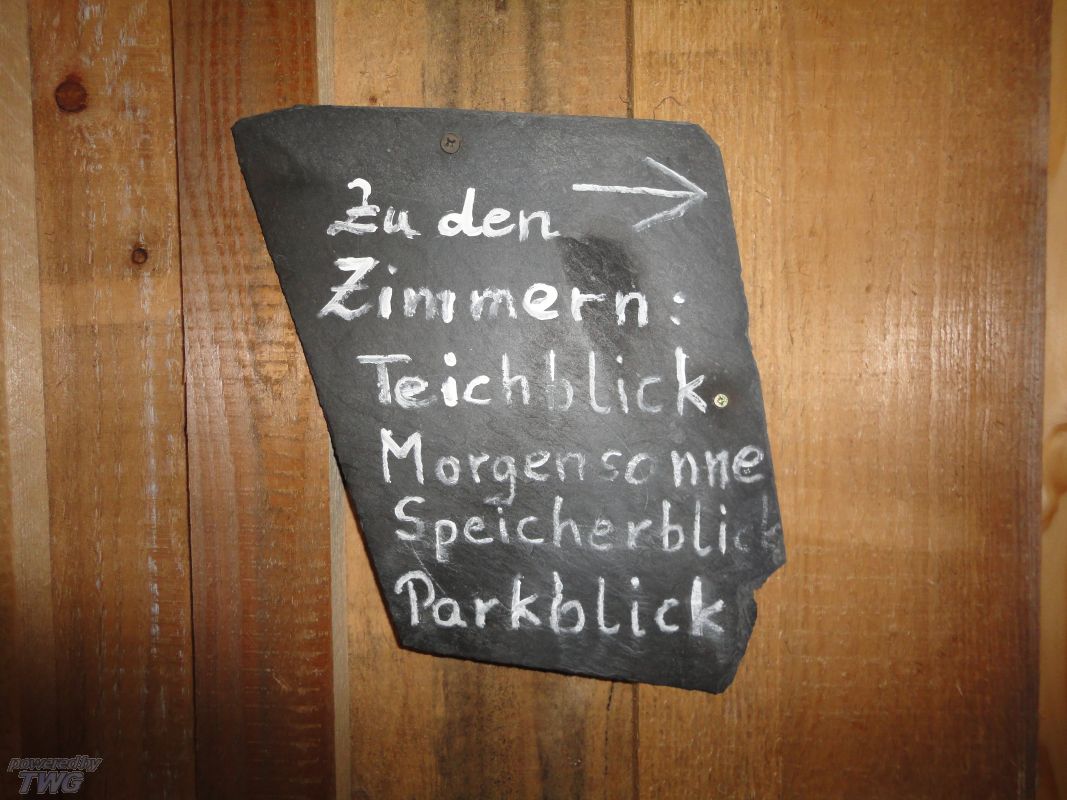 Zu den →
Zimmern:
Teichblick
Morgensonne
Speicherblick
Parkblick
powered by
TWG